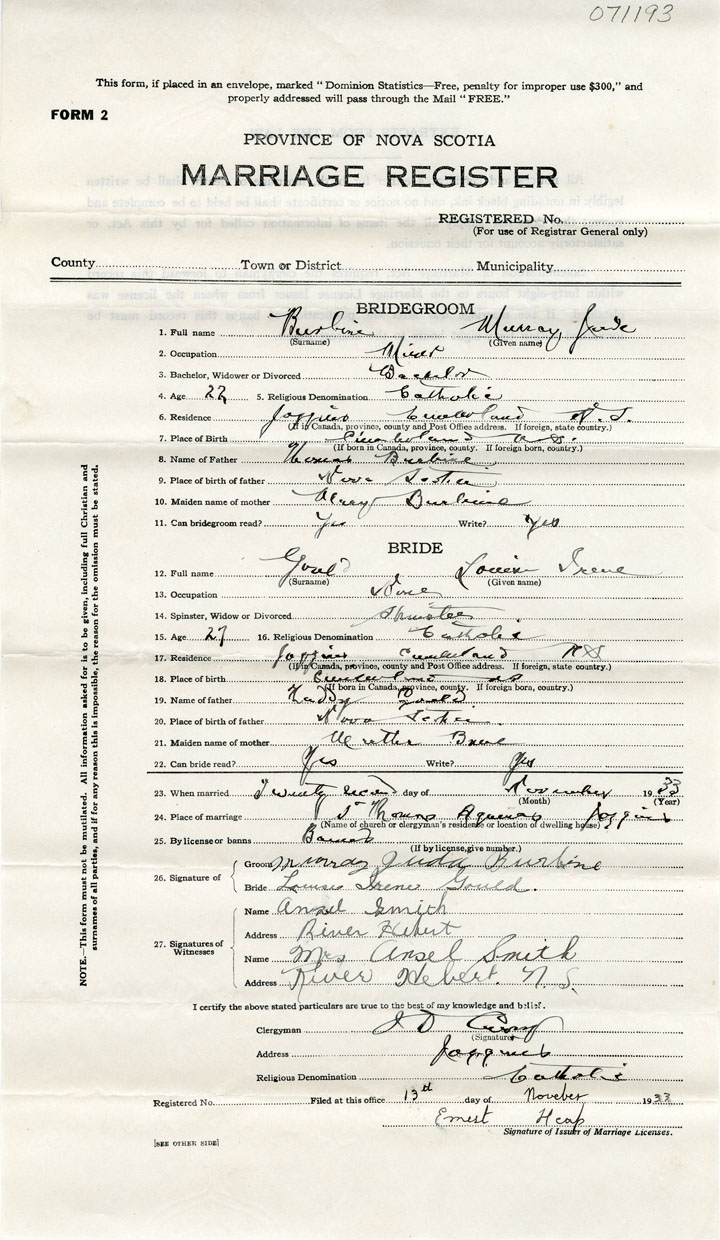 071193
This form, if placed in an envelope, marked "Dominion Statistics—Free, penalty for improper use $300," and
properly addressed will pass through the Mail "FREE."
FORM 2
PROVINCE OF NOVA SCOTIA
MARRIAGE REGISTER
REGISTERED No.
(For use of Registrar General only)
County Town or District Municipality
BRIDEGROOM
1. Full name Burbine Murray Jude
(Surname) (Given name)
2. Occupation Miner
3. Bachelor, Widower or Divorced Bachelor
4. Age 22 5. Religious Denomination Catholic
6. Residence Joggins Cumberland N.S.
(If in Canada, province, county and Post Office address. If foreign, state country.)
7. Place of Birth Cumberland N.S.
(If born in Canada, province, county. If foreign born, country.)
8. Name of Father Thomas Burbine
9. Place of birth of father Nova Scotia
10. Maiden name of mother Burbine
11. Can bridegroom read? Yes Write? Yes
BRIDE
12. Full name Gould Louise Irene
(Surname) (Given name)
13. Occupation None
14. Spinster, Widow or Divorced Spinster
15. Age 27 16. Religious Denomination Catholic
17. Residence Joggins Cumberland NS
(If in Canada, province, county and Post Office address. If foreign, state country.)
18. Place of birth Cumberland NS
(If born in Canada, province, county. If foreign born, country.)
19. Name of father
20. Place of birth of father Nova Scotia
21. Maiden name of mother Martha
22. Can bride read? Yes Write? Yes
23. When married Twenty day of November 1933
(Month) (Year)
24. Place of marriage St Thomas Aquinas Joggins
(Name of church or clergyman's residence or location of dwelling house)
25. By license or banns Banns
(If by license, give number.)
26. Signature of
Groom Murray Juda Burbine
Bride Louise Irene Gould.
27. Signatures of Witnesses
Name Ansel Smith
Address River Hebert
Name Mrs Ansel Smith
Address River Hebert. N.S.
I certify the above stated particulars are true to the best of my knowledge and belief.
Clergyman
(Signature)
Address Joggins
Religious Denomination Catholic
Registered No. Filed at this office 13th day of Noveber 1933
Ernest Heap
Signature of Issuer of Marriage Licenses.
[SEE OTHER SIDE]
NOTE.—This form must not be mutilated. All information asked for is to be given, including full Christian and
surnames of all parties, and if for any reason this is impossible, the reason for the omission must be stated.